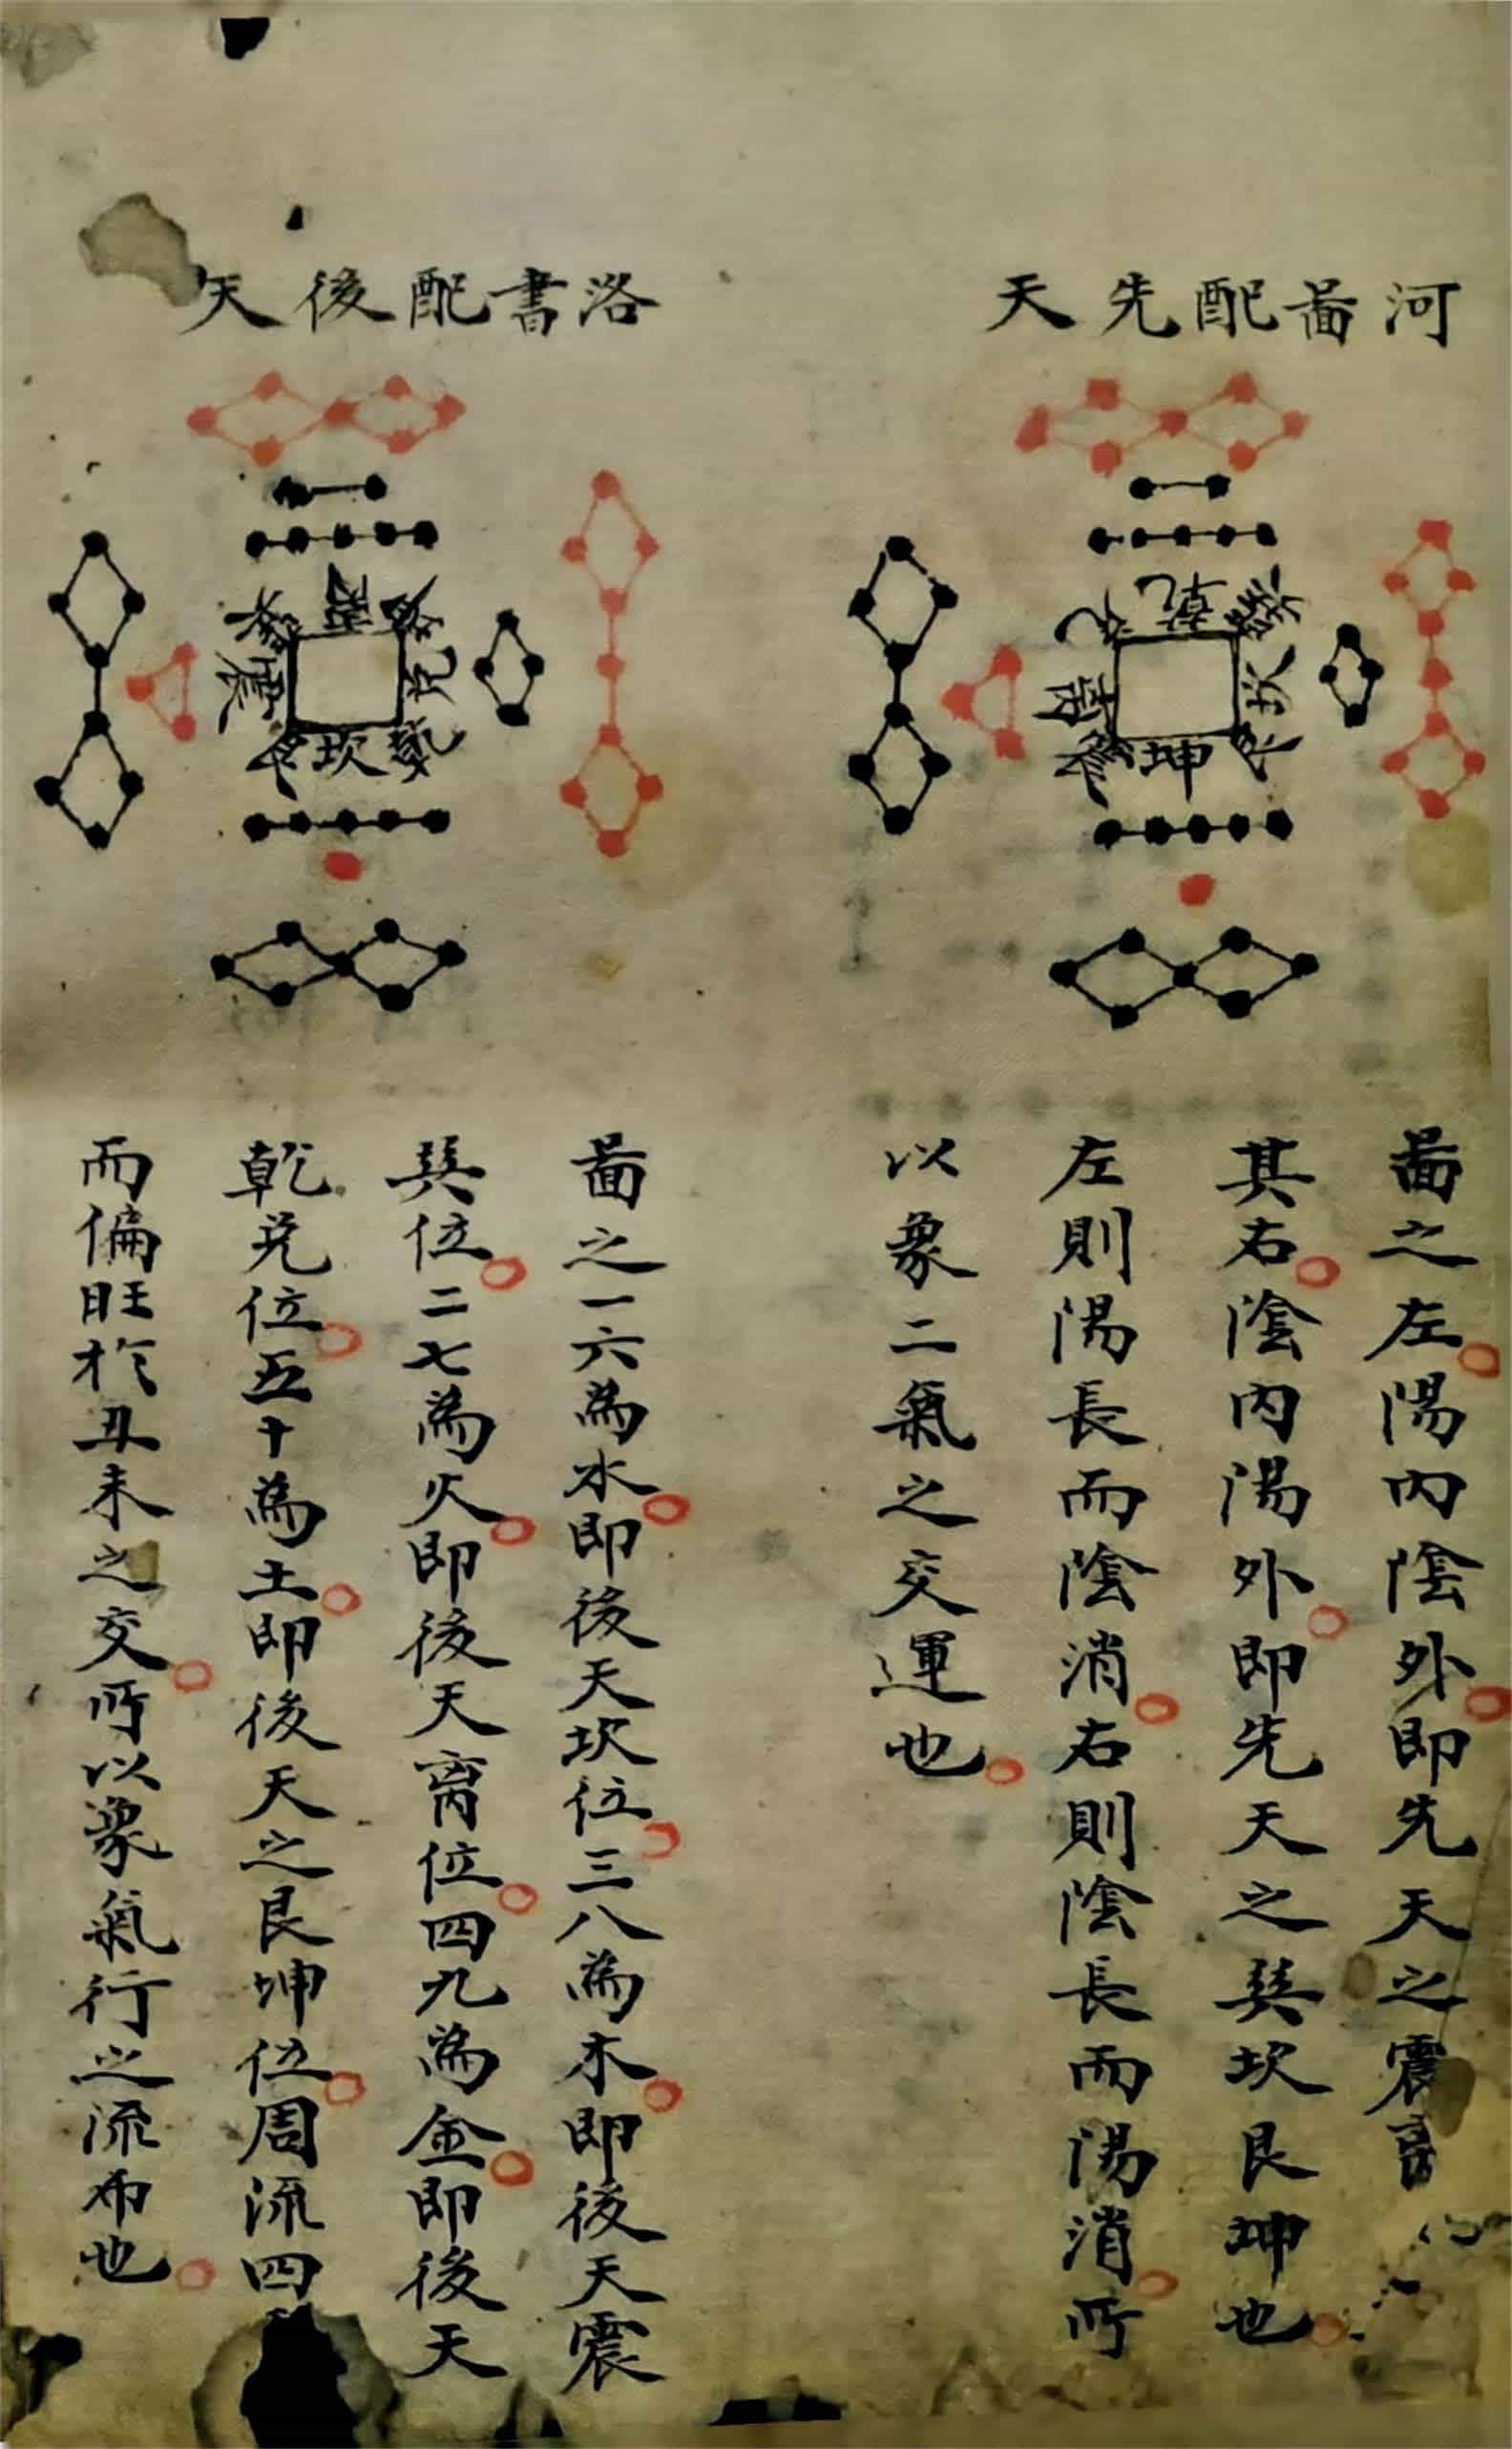 河啚配先天
乾
巽
坎
艮
坤
震
离
兌
啚之左陽内陰外即先天之震离
其右陰内陽外即先天之巽坎艮坤也
左則陽長而陰消右則陰長而陽消所
以象二氣之交運也
洛書配後天
离
坤
兌
乾
坎
艮
震
巽
啚之一六為水即後天坎位三八為木即後天震
巽位二七為火即後天离位四九為金即後天
乾兌位五十為土即後天之艮坤位周流四
而偏旺於丑未之交所以象氣行之流布也